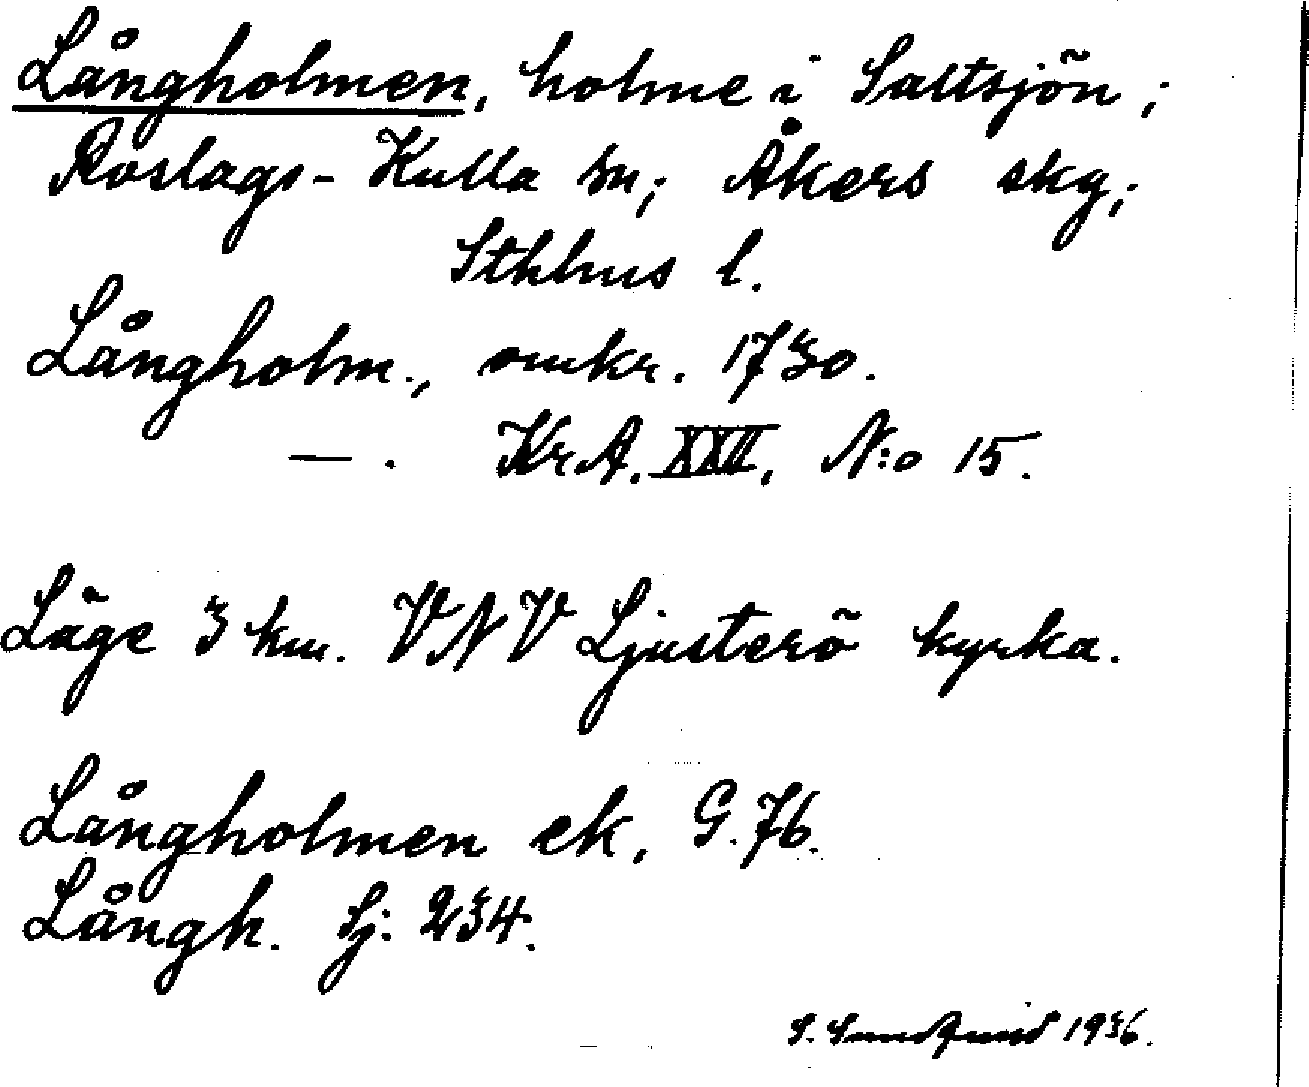 Långholmen, holme i Saltsjön;
Roslags-Kulla sn; Åkers skg;
Sthlms l.
Långholm., omkr. 1730.
—. KrA. XXII, N:o 15.
Läge 3 km. VNV Ljusterö kyrka.
Långholmen ek, G.76.
Långh. Sj: 234.
S. Sundquist 1936.